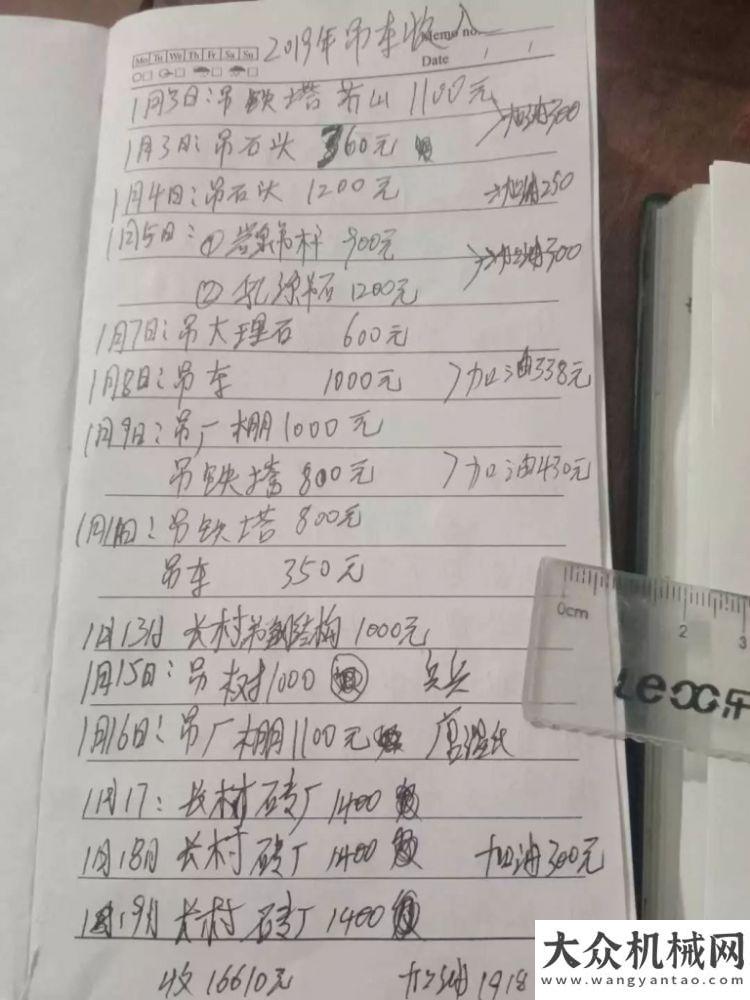 2019年吊车收入
Memo no.
Mo Tu We Th Fr Sa Su
Date / /
1月3日:吊铁塔 若山 1100元
加油300
1月3日:吊石头 360元
1月4日:吊石头 1200元 加油250
1月5日:① 吊杆 900元
加油300
② 1200元
1月7日:吊大理石 600元
1月8日:吊车 1000元 加油338元
1月9日:吊厂棚1000元
吊铁塔 800元 加油430元
吊铁塔 800元
吊车 350元
1月13日 长村吊钢结构 1000元
1月15日:吊树1000
1月16日:吊厂棚1100元
1月17:长村砖厂1400
1月18日 长村砖厂1400 加油300元
1月19日 长村砖厂1400
收16610元 加油1918
0cm 2 3
大众机械网
www.wangyantao.com